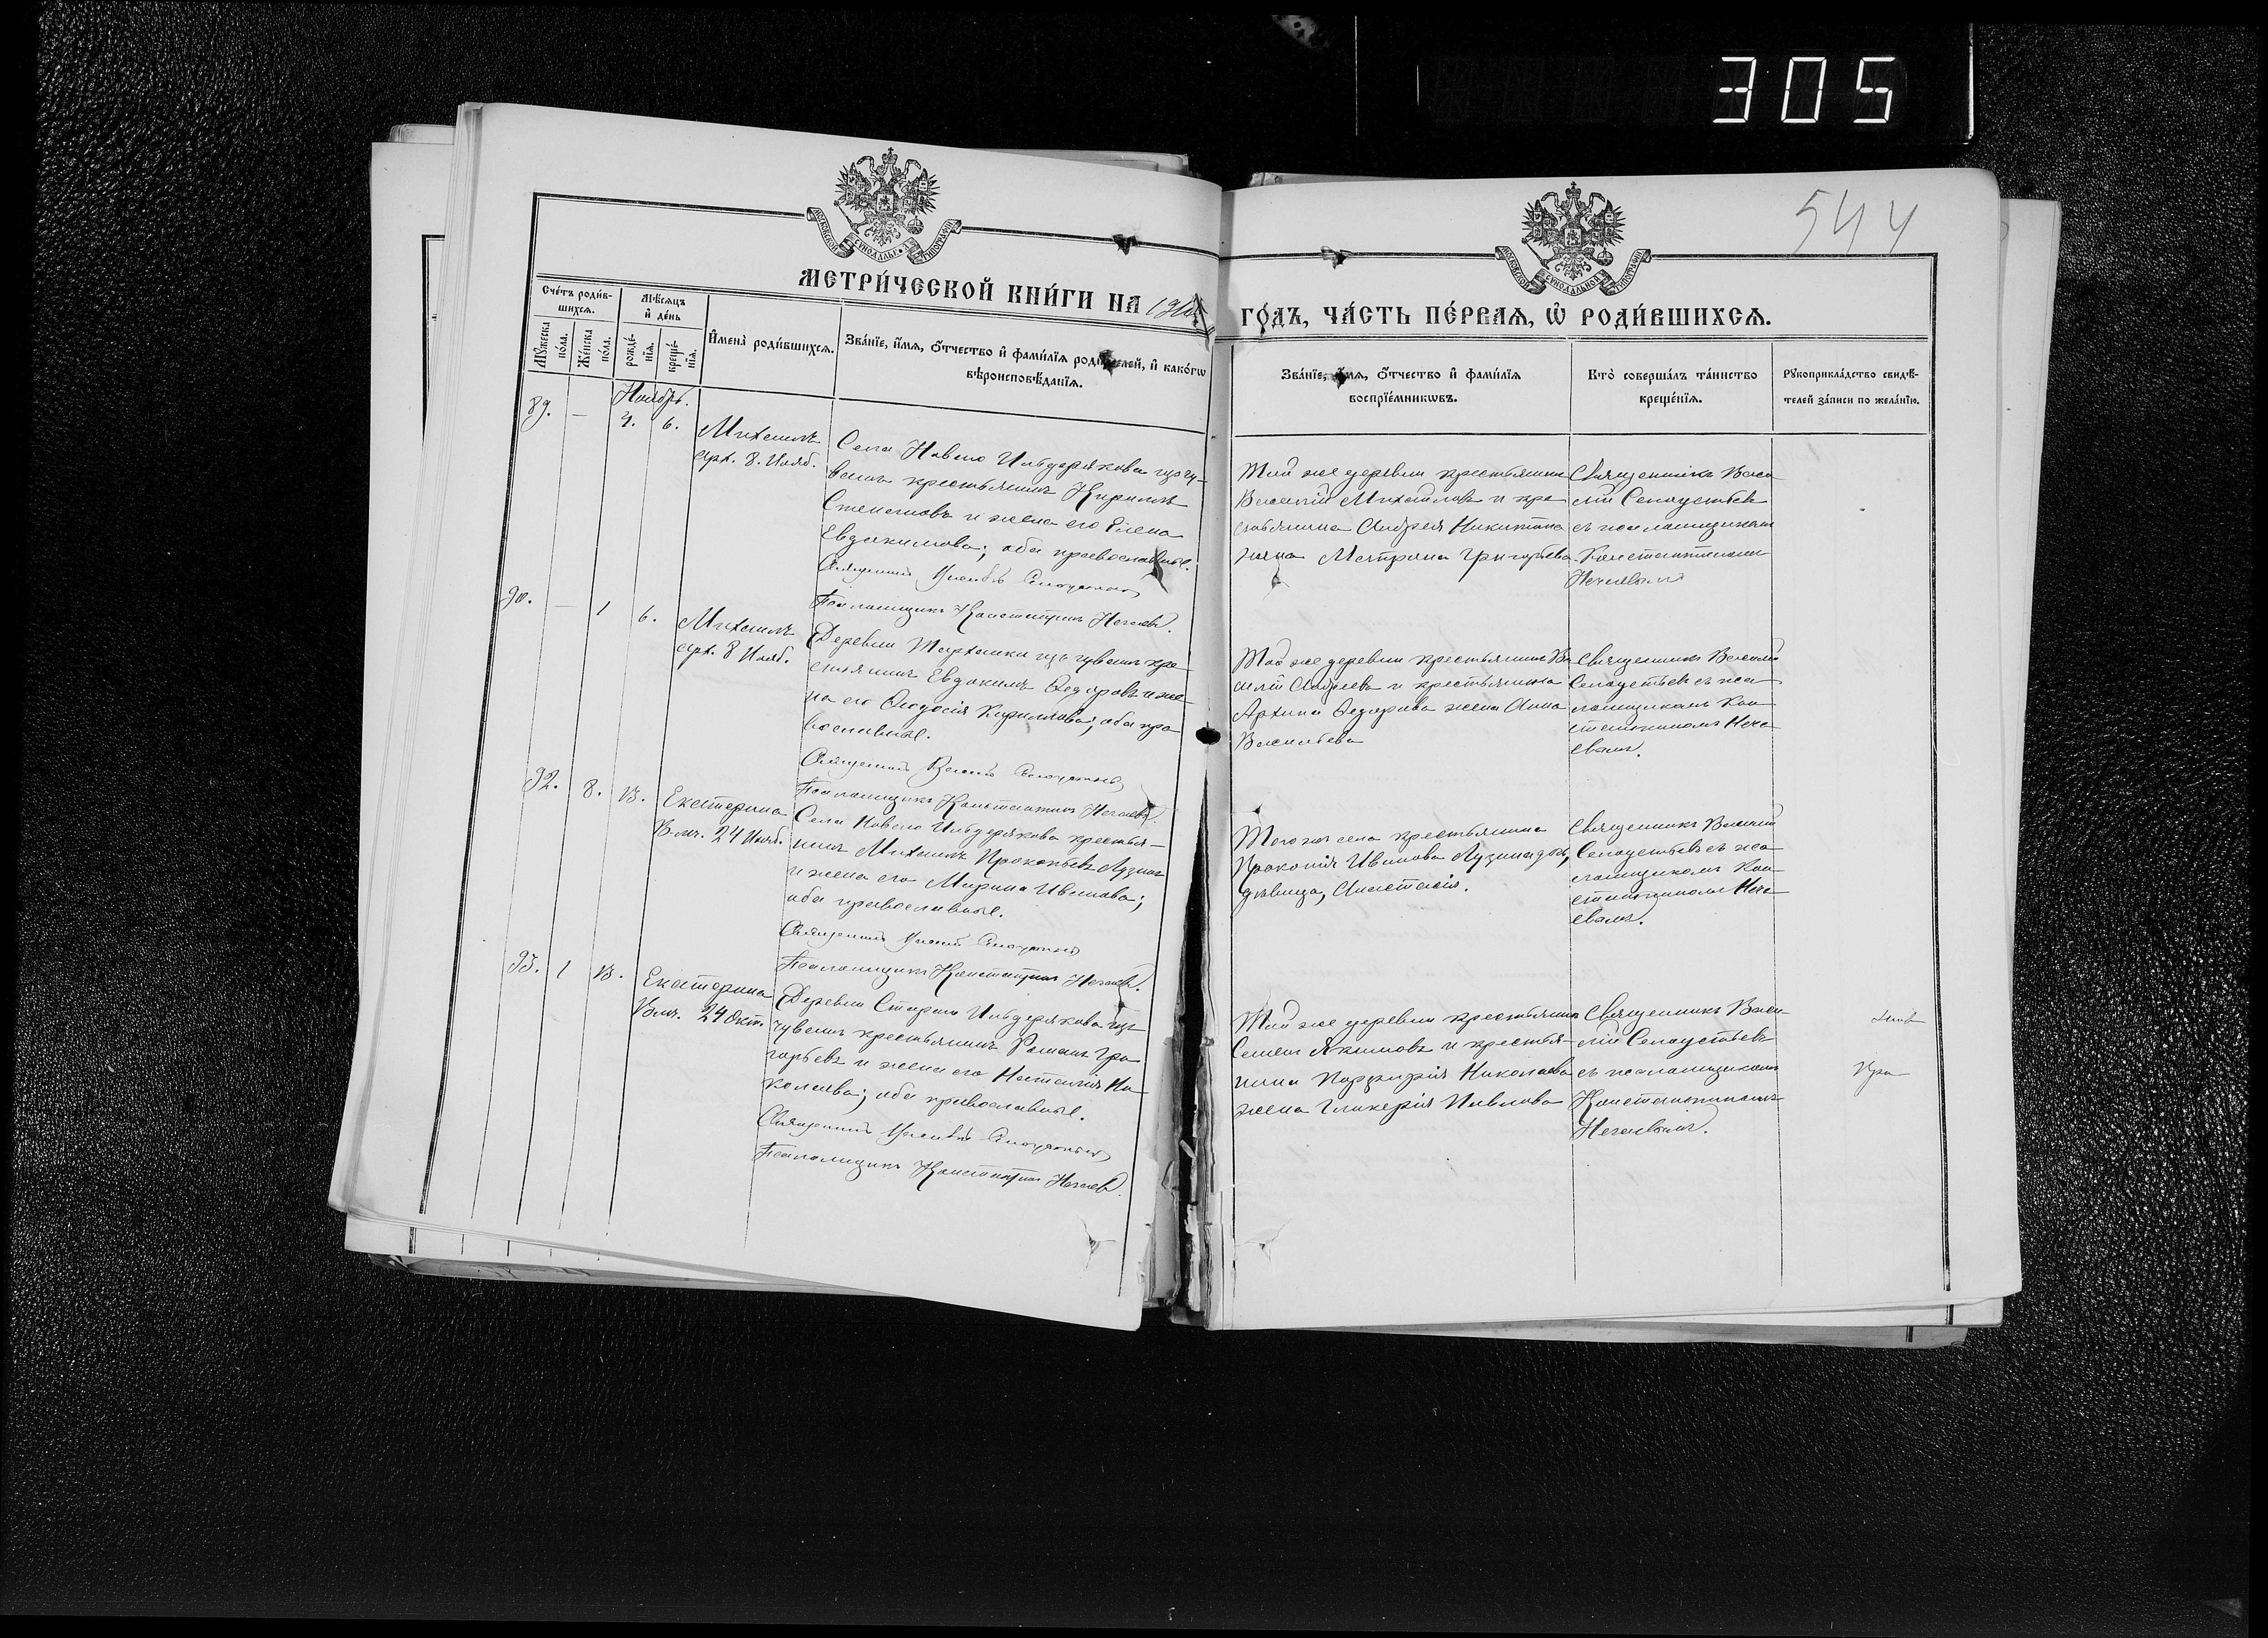 305
544
МОСКОВСКОЙ СѴНОДАЛЬНОЙ ТИПОГРАФІИ
МОСКОВСКОЙ СѴНОДАЛЬНОЙ ТИПОГРАФІИ
МЕТРИ́ЧЕСКОЙ КНИ́ГИ НА
ГО́ДЪ, ЧА́СТЬ ПЕ́РВАЯ, Ѡ РОДИ́ВШИХСЯ.
Сче́тъ роди́в-
шихся.
Мꙋ́жеска по́ла.
Же́нска по́ла.
Мѣ́сяцъ
и҆ де́нь
рожде́-
нїя.
креще́-
нїя.
И҆мена̀ роди́вшихся.
Зва́нїе, и҆́мя, ѻ҆́тчество и҆ фами́лїя роди́телей, и҆ како́гѡ
вѣроисповѣ́данїя.
Зва́нїе, и҆́мя, ѻ҆́тчество и҆ фами́лїя
воспрїе́мникѡвъ.
Кто̀ соверша́лъ та́инство
креще́нїя.
Рꙋкоприкла́дство свидѣ́-
телей за́писи по жела́нїю.
Ноябрь.
89. — 4. 6.
Михаилъ
Арх. 8. Нояб.
Села Новаго Ильдерякова изъ чу-
вашъ крестьянинъ Кириллъ
Степановъ и жена его Елена
Евдокимова; оба православные.
Священникъ
Псаломщикъ Константинъ Нечаевъ.
Той же деревни крестьянинъ
Василій Михайловъ и кре
стьянина Андрея Никитина
жена Матрона Григорьева.
Священникъ Васи
лій
съ псаломщикомъ
Константиномъ
Нечаевымъ
90. — 1 6.
Михаилъ
Арх. 8 Нояб.
Деревни изъ чувашъ кре
стьянинъ Евдокимъ Ѳедоровъ и же
на его Ѳеодосія Кириллова; оба пра
вославные.
Священникъ Василій
Псаломщикъ Константинъ Нечаевъ.
Той же деревни крестьянинъ Ва
силій Андреевъ и крестьянина
Архипа Ѳедорова жена Анна
Васильева
Священникъ Василій
съ пса
ломщикомъ Кон
стантиномъ Неча
евымъ.
92. 8. 13.
Екатерина
Влмч. 24 Нояб.
Села Новаго Ильдерякова крестья-
нинъ Михаилъ Прокопьевъ Лузинъ
и жена его Марина Иванова;
оба православные.
Священникъ
Псаломщикъ Константинъ Нечаевъ.
Того же села крестьянина
Прокопія Иванова Лузина дочь,
дѣвица, Анастасія.
Священникъ Василій
съ пса
ломщикомъ Кон
стантиномъ Неча
евымъ.
93. 1 13.
Екатерина
Влмч. 24 Окт.
Деревни Стараго Ильдерякова изъ
чувашъ крестьянинъ Романъ Гри
горьевъ и жена его Наталія Ни
колаева; оба православные.
Священникъ
Псаломщикъ Константинъ Нечаевъ.
Той же деревни крестьянинъ
Семенъ Якимовъ и крестья-
нина Порфирія Николаева
жена Гликерія Павлова
Священникъ Васи
лій
съ псаломщикомъ
Константиномъ
Нечаевымъ.